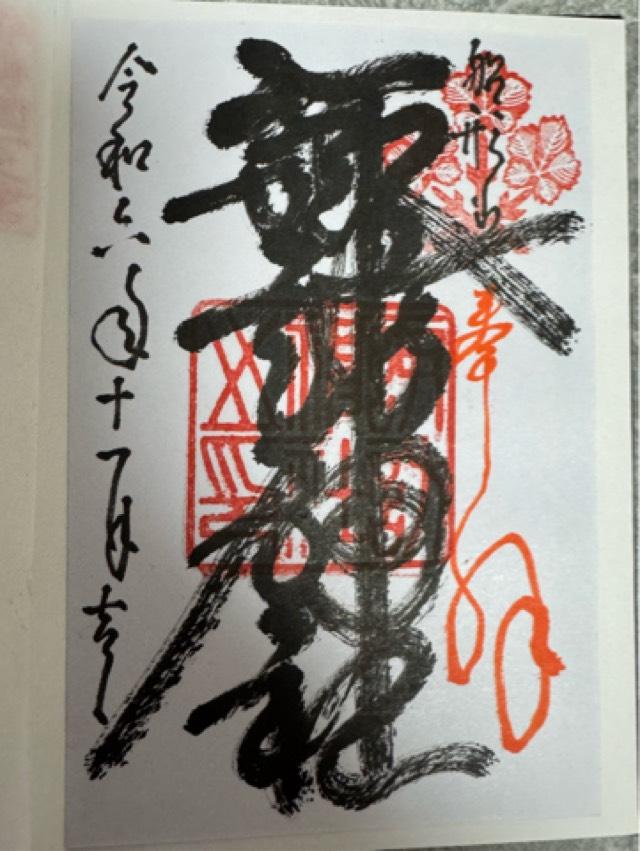 船形山
奉拝
諏訪神社
令和六年十一月吉日